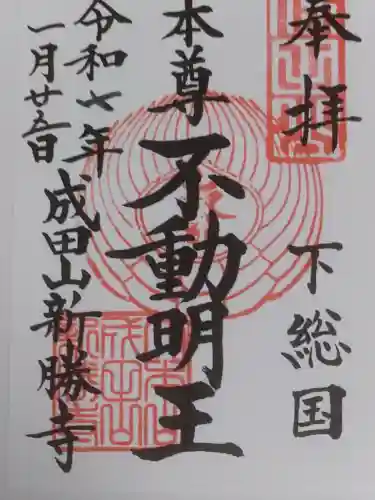 奉拝
下総国
本尊
不動明王
令和七年
一月廿五日
成田山新勝寺